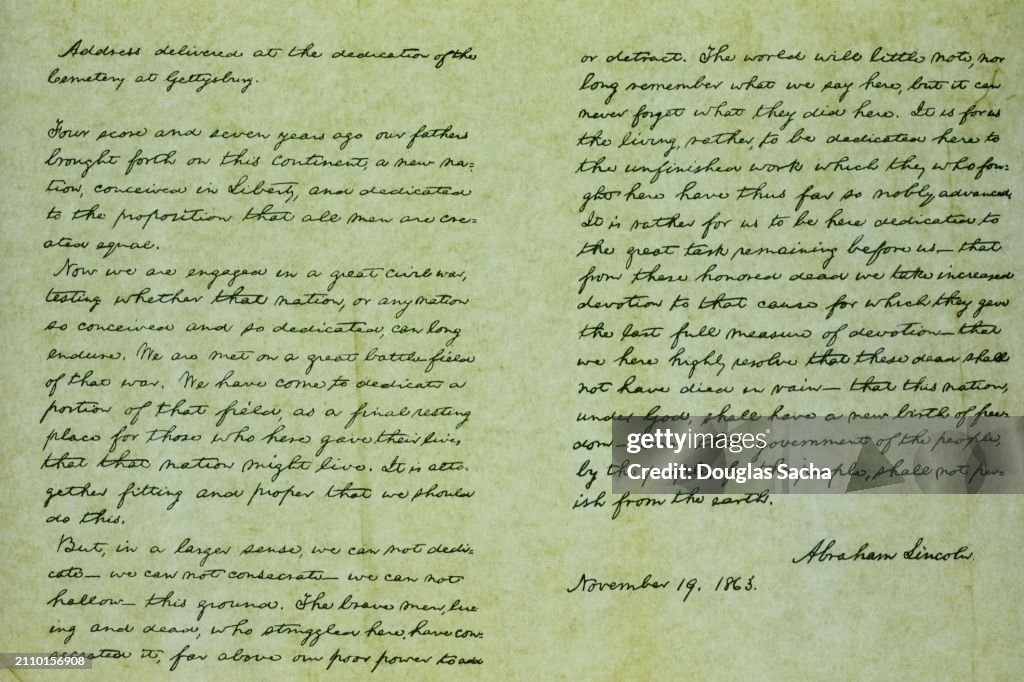 Address delivered at the dedication of the
Cemetery at Gettysburg.
Four score and seven years ago our fathers
brought forth on this continent, a new na=
tion, conceived in Liberty, and dedicated
to the proposition that all men are cre=
ated equal.
Now we are engaged in a great civil war,
testing whether that nation, or any nation
so conceived and so dedicated, can long
endure. We are met on a great battle-field
of that war. We have come to dedicate a
portion of that field, as a final resting
place for those who here gave their lives,
that that nation might live. It is alto=
gether fitting and proper that we should
do this.
But, in a larger sense, we can not dedi=
cate— we can not consecrate— we can not
hallow— this ground. The brave men, liv=
ing and dead, who struggled here, have con=
secrated it, far above our poor power to add
or detract. The world will little note, nor
long remember what we say here, but it can
never forget what they did here. It is for us
the living, rather, to be dedicated here to
the unfinished work which they who fou=
ght here have thus far so nobly advanced.
It is rather for us to be here dedicated to
the great task remaining before us— that
from these honored dead we take increased
devotion to that cause for which they gave
the last full measure of devotion— that
we here highly resolve that these dead shall
not have died in vain— that this nation,
under God, shall have a new birth of free=
dom— government of the people,
by the people, shall not per=
ish from the earth.
Abraham Lincoln.
November 19, 1863.
gettyimages®
Douglas Sacha
2110156908